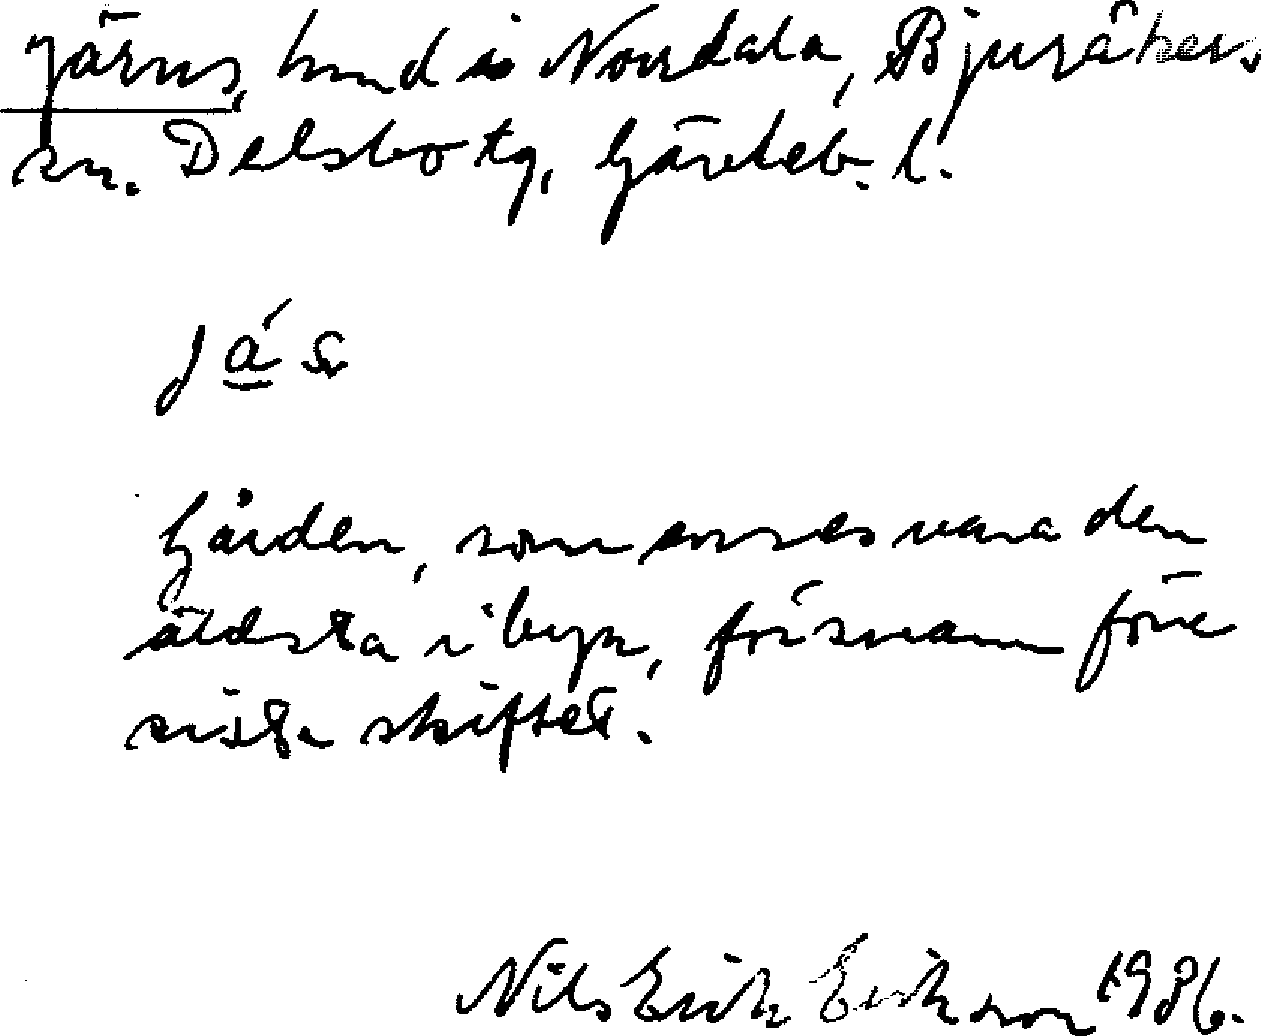 Järns, hmd i Nordala, Bjuråkers
sn. Delsbo tg, Gävleb. l.
Gården, som anses vara den
äldsta i byn, försvann före
sista skiftet.
Nils Erik Eriksson 1986.